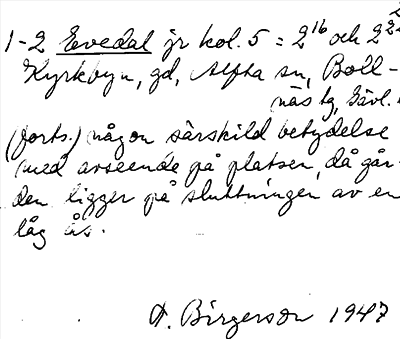 1-2 Evedal jr kol. 5 = 2¹⁶ och 2²²
Kyrkbyn, gd, Alfta sn, Boll-
näs tg, Gävl.
(forts.) någon särskild betydelse
med avseende på platsen, då går-
den ligger på sluttningen av en
låg ås.
A. Birgerson 1947